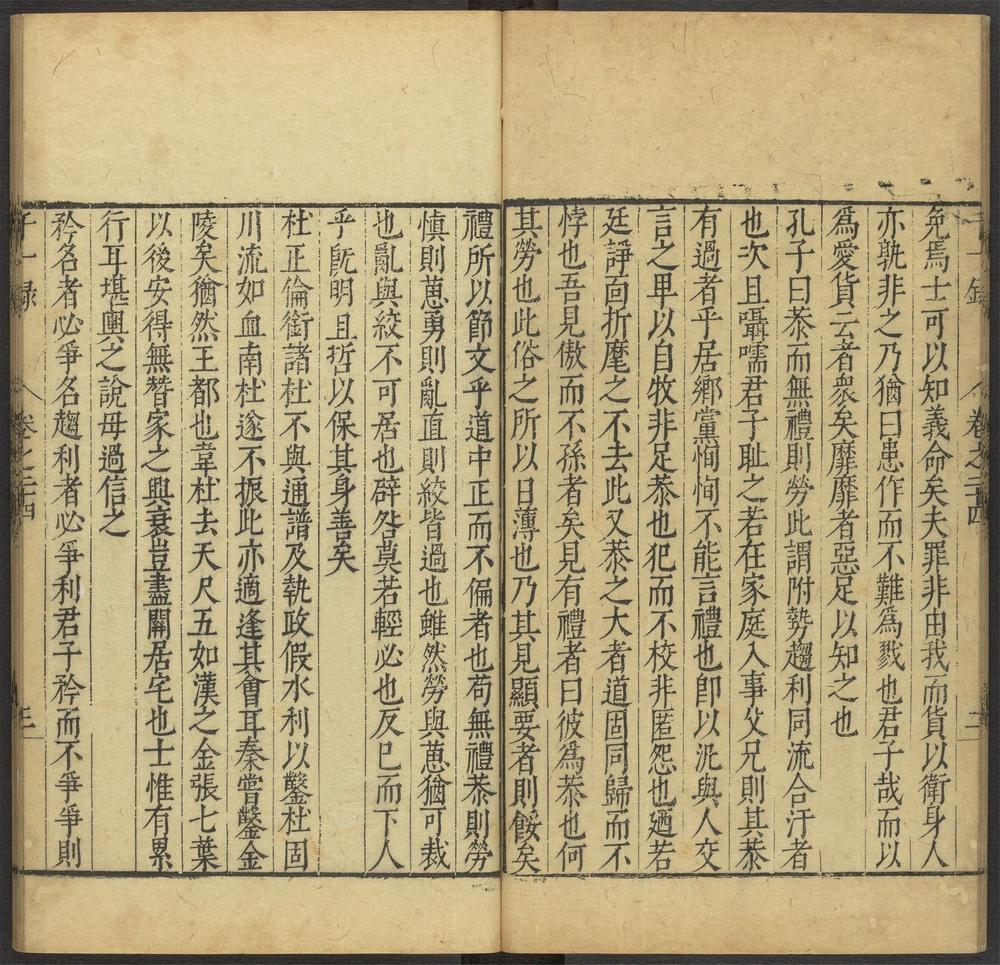 千一錄 卷之二十四 二
免焉士可以知義命矣夫罪非由我而貨以衛身人
亦孰非之乃猶曰患作而不難為戮也君子哉而以
為愛貨云者衆矣靡靡者惡足以知之也
孔子曰恭而無禮則勞此謂附勢趨利同流合汙者
也次且囁嚅君子耻之若在家庭入事父兄則其恭
有過者乎居鄉黨恂恂不能言禮也卽以汎與人交
言之卑以自牧非足恭也犯而不校非匿怨也廼若
廷諍面折麾之不去此又恭之大者道固同歸而不
悖也吾見傲而不孫者矣見有禮者曰彼為恭也何
其勞也此俗之所以日薄也乃其見顯要者則餒矣
禮所以節文乎道中正而不偏者也苟無禮恭則勞
慎則葸勇則亂直則絞皆過也雖然勞與葸猶可裁
也亂與絞不可居也辟咎莫若輕必也反已而下人
乎旣明且哲以保其身善矣
杜正倫銜諸杜不與通譜及執政假水利以鑿杜固
川流如血南杜遂不振此亦適逢其會耳秦嘗鑿金
陵矣猶然王都也韋杜去天尺五如漢之金張七葉
以後安得無替家之興衰豈盡關居宅也士惟有累
行耳堪輿之說毋過信之
矜名者必爭名趨利者必爭利君子矜而不爭爭則
千一錄 卷之二十四 三